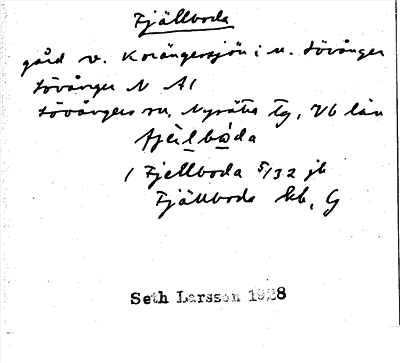 Fjällboda
gård v. Korängersjön i n. Lövånger
Lövånger N A1
Lövångers sn, Nysätra tg, Vb län
fjèlbóda
1 Fjellboda 5/32 jb
Fjällboda kb, G
Seth Larsson 1928